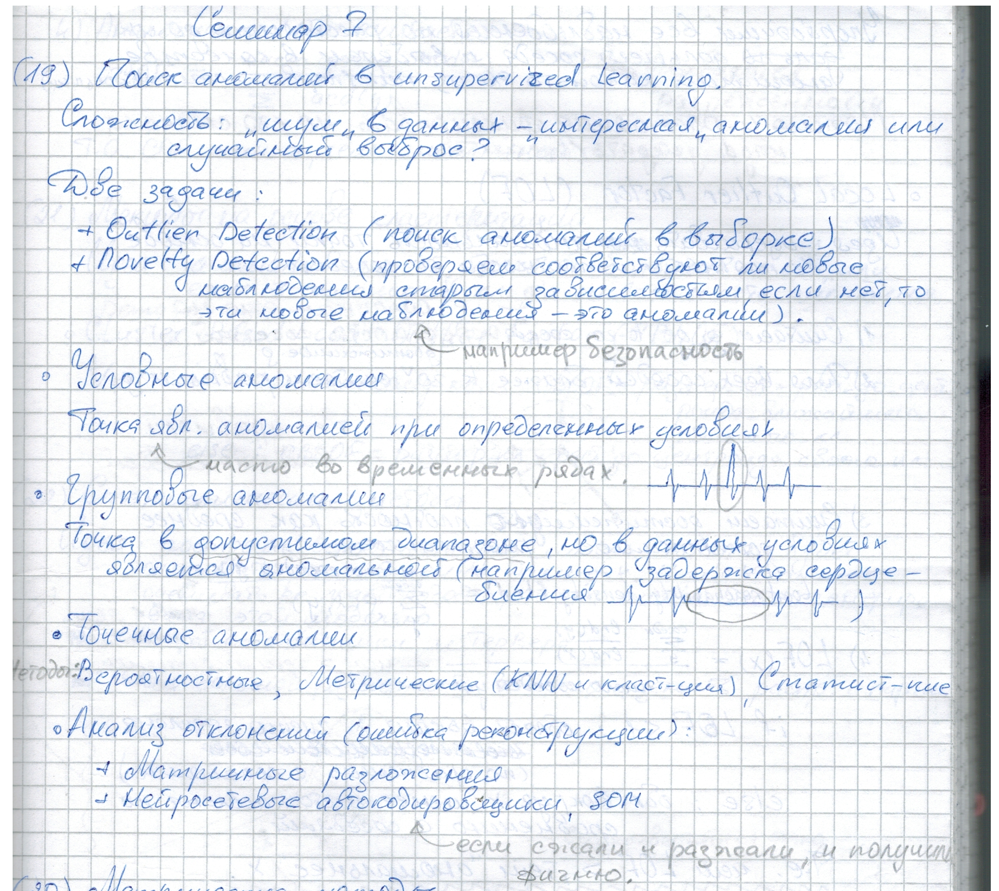 Семинар 7
(19) Поиск аномалий в unsupervized Learning.
Сложность: „шум„ в данных – „интересная„ аномалия или
случайный выброс?
Две задачи:
+ Outlier Detection (поиск аномалий в выборке)
+ Novelty Detection (проверяем соответствуют ли новые
наблюдения старым зависимостям, если нет, то
эти новые наблюдения – это аномалии).
например безопасность
Условные аномалии
Точка явл. аномалией при определенных условиях
часто во временных рядах.
Групповые аномалии
Точка в допустимом диапазоне, но в данных условиях
является аномальной (например задержка сердце-
биения )
Точечные аномалии
Методы: Вероятностные, Метрические (KNN и класт-ция), Статист-кие
Анализ отклонений (ошибка реконструкции):
+ Матричные разложения
+ Нейросетевые автокодировщики, SOM
если сжали и разжали, и получили
фигню.
(20) Матрические методы